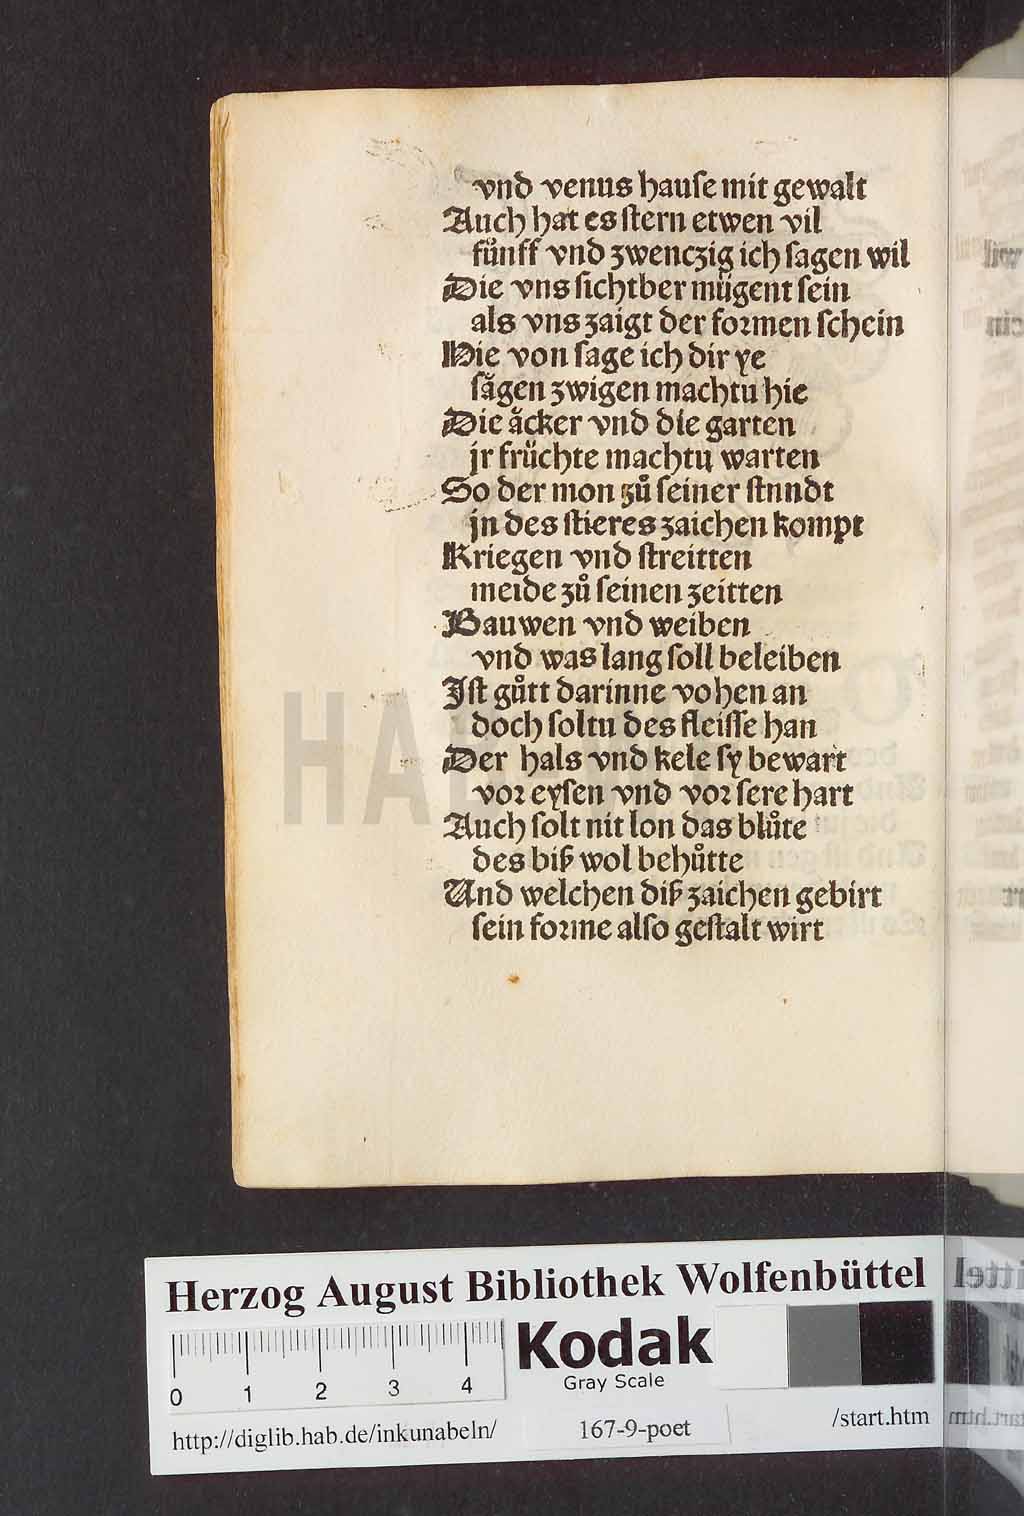 vnd venus hauſe mit gewalt
Auch hat es ſtern etwen vil
fuͤnff vnd zwenczig ich ſagen wil
Die vns ſichtber mügent ſein
als vns zaigt der foꝛmen ſchein
Hie von ſage ich dir ye
ſaͤgen zwigen machtu hie
Die aͤcker vnd die garten
jr früchte machtu warten
So der mon zuͦ ſeiner ſtnndt
jn des ſtieres zaichen kompt
Kriegen vnd ſtreitten
meide zuͦ ſeinen zeitten
Bauwen vnd weiben
vnd was lang ſoll beleiben
Iſt guͦtt darinne vohen an
doch ſoltu des fleiſſe han
Der hals vnd kele ſy bewart
voꝛ eyſen vnd voꝛ ſere hart
Auch ſolt nit lon das bluͦte
des biß wol behuͦtte
Und welchen diß zaichen gebirt
ſein foꝛme alſo geſtalt wirt
HAB
Herzog August Bibliothek Wolfenbüttel
0 1 2 3 4
Kodak
Gray Scale
http://diglib.hab.de/inkunabeln/ 167-9-poet /start.htm